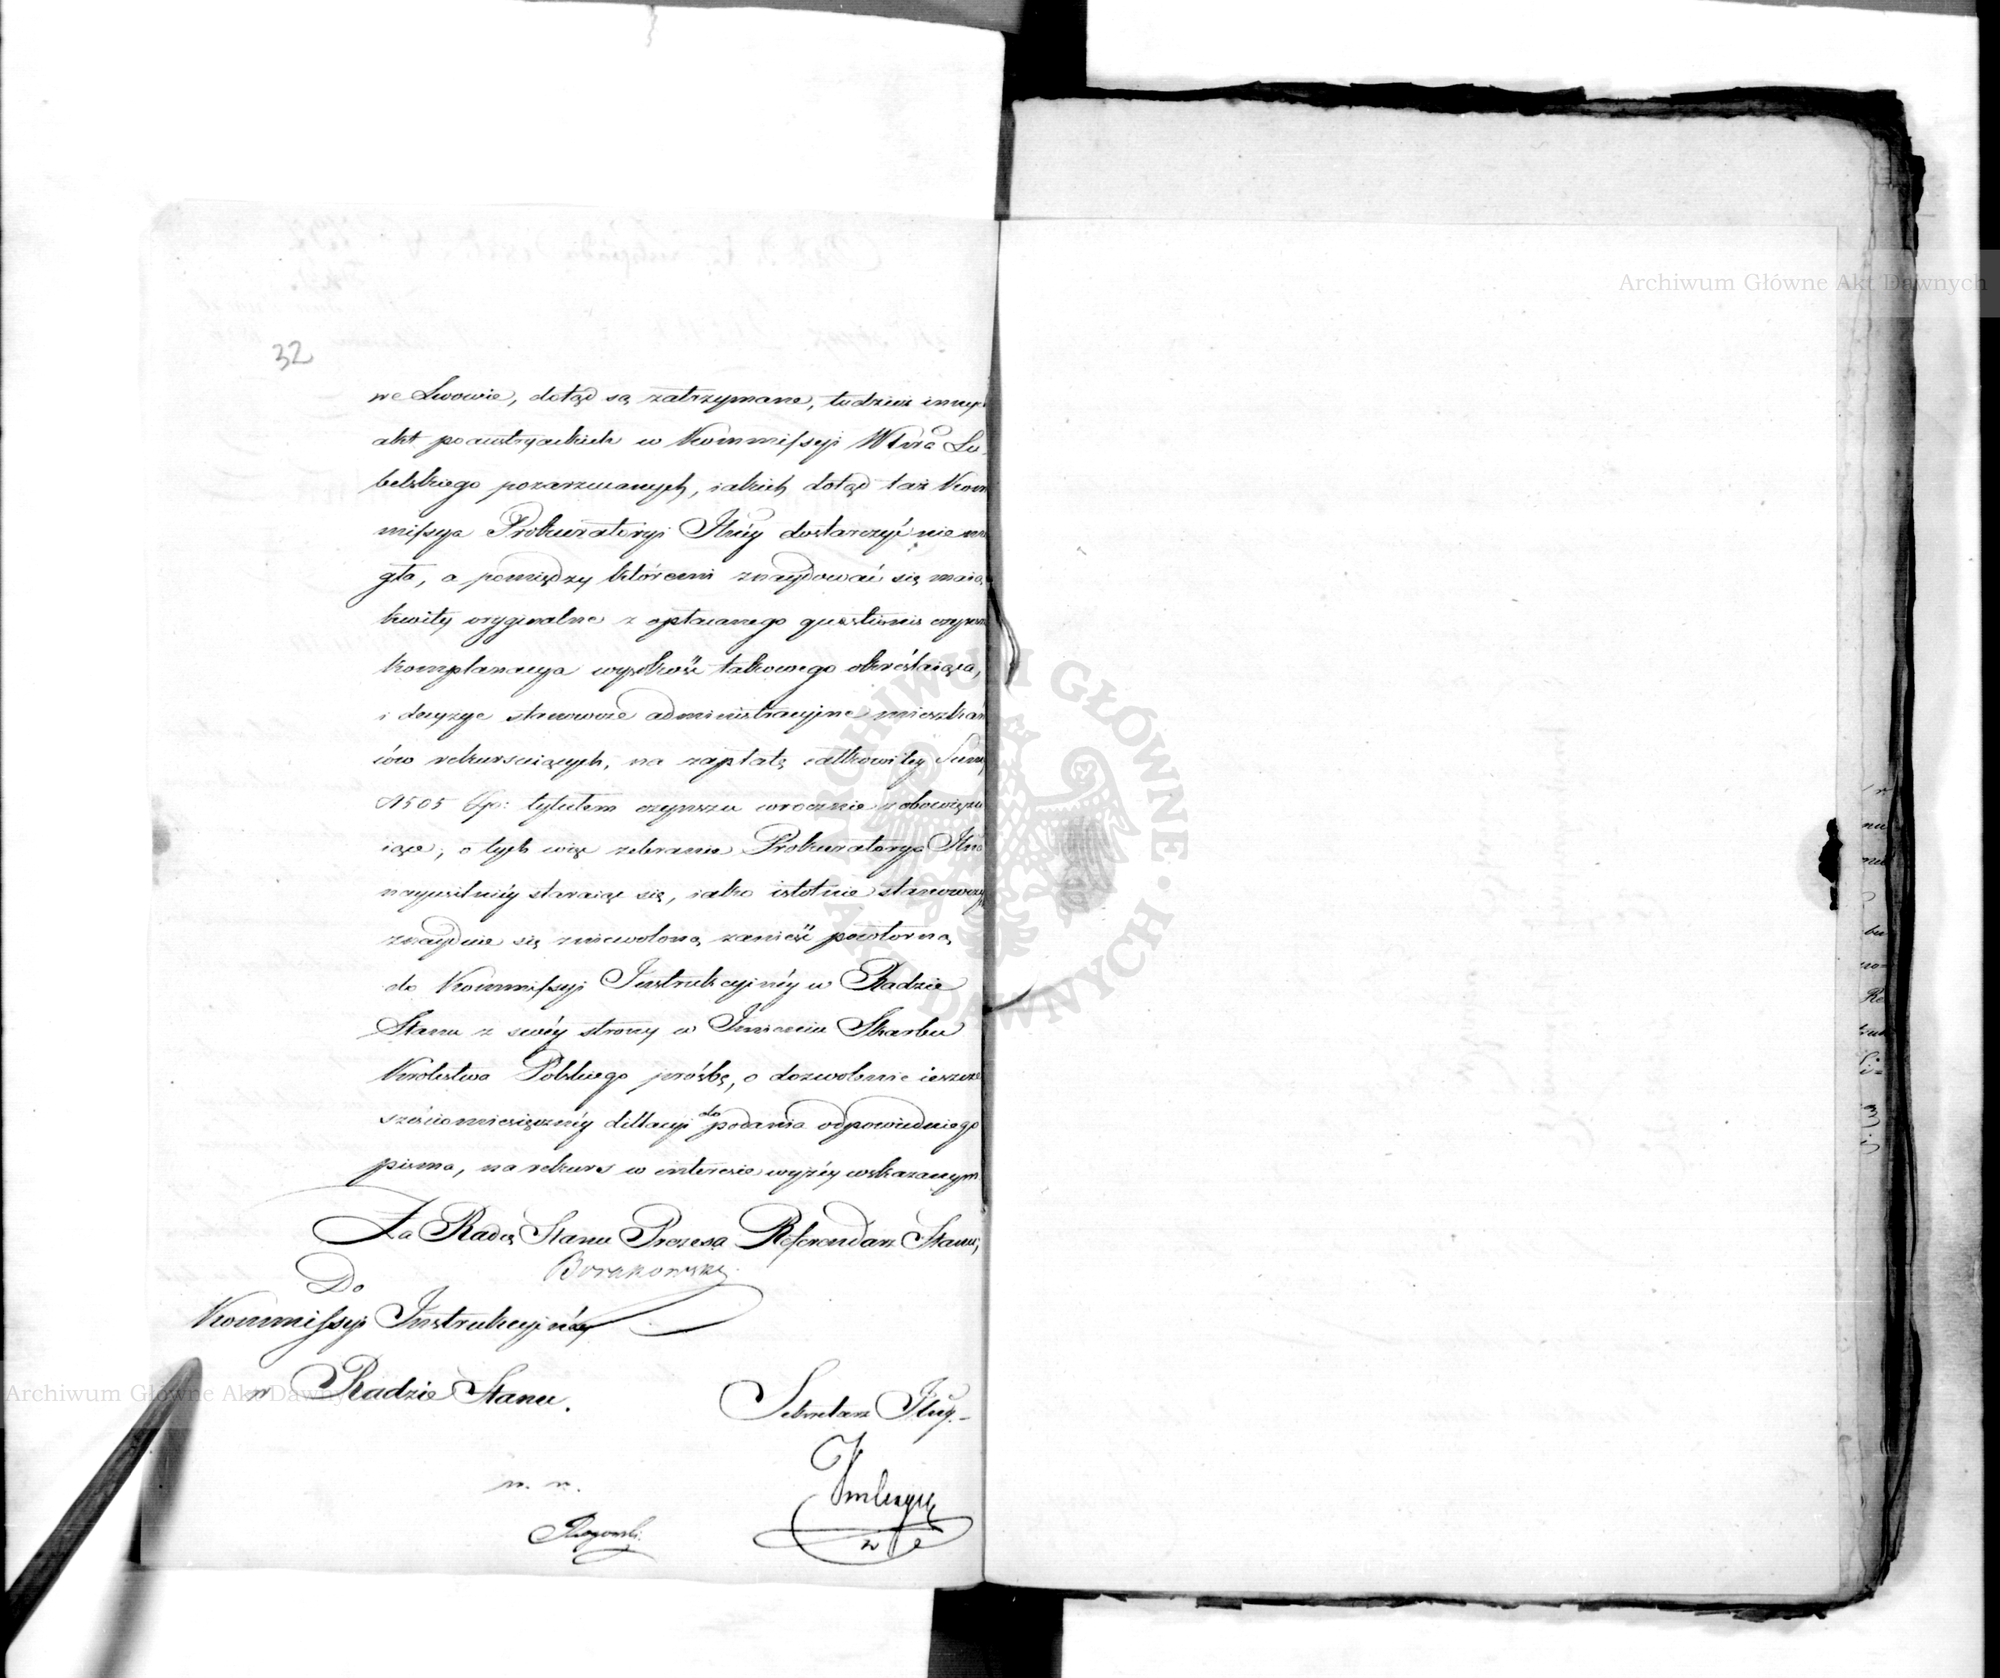 32
we Lwowie, dotąd są zatrzymane, tudzież innych
akt poaustryackich w Kommissyi Wtwa Lu-
belskiego pozarzucanych, iakich dotąd taż Kom
missya Prokuratoryi Jlnéy dostarczyć nie mo
gła, a pomiędzy któremi znaydować się maią
kwity oryginalne z opłacanego questionis czynszu
komplanacya wysokość takowego określaiąca,
i decyzye stanowcze administracyjne mieszkań
ców rekursuiących, na zapłatę całkowitey Summy
1505 Złp: tytułem czynszu wrocznie zobowięzu
iące, o tych więc zebranie Prokuratorya Jlna
nayusilniéy staraiąc się, iako istotnie stanowczych
znayduie się zniewoloną zanieść powtórną
do Kommissyi Instrukcyinéy w Radzie
Stanu z swéy strony w Imieniu Skarbu
Krolestwa Polskiego prośbę, o dozwolenie ieszcze
sześciomiesięcznéy dillacyi do podania odpowiedniego
pisma, na rekurs w interesie wyżéy wskazanym
Za Radcę Stanu Prezesa Referendarz Stanu,
Borakowski
Do
Kommissyi Instrukcyinéy
w Radzie Stanu.
Sekretarz Jlny.
Archiwum Główne Akt Dawnych
Archiwum Główne Akt Dawnych
ARCHIWUM GŁÓWNE AKT DAWNYCH